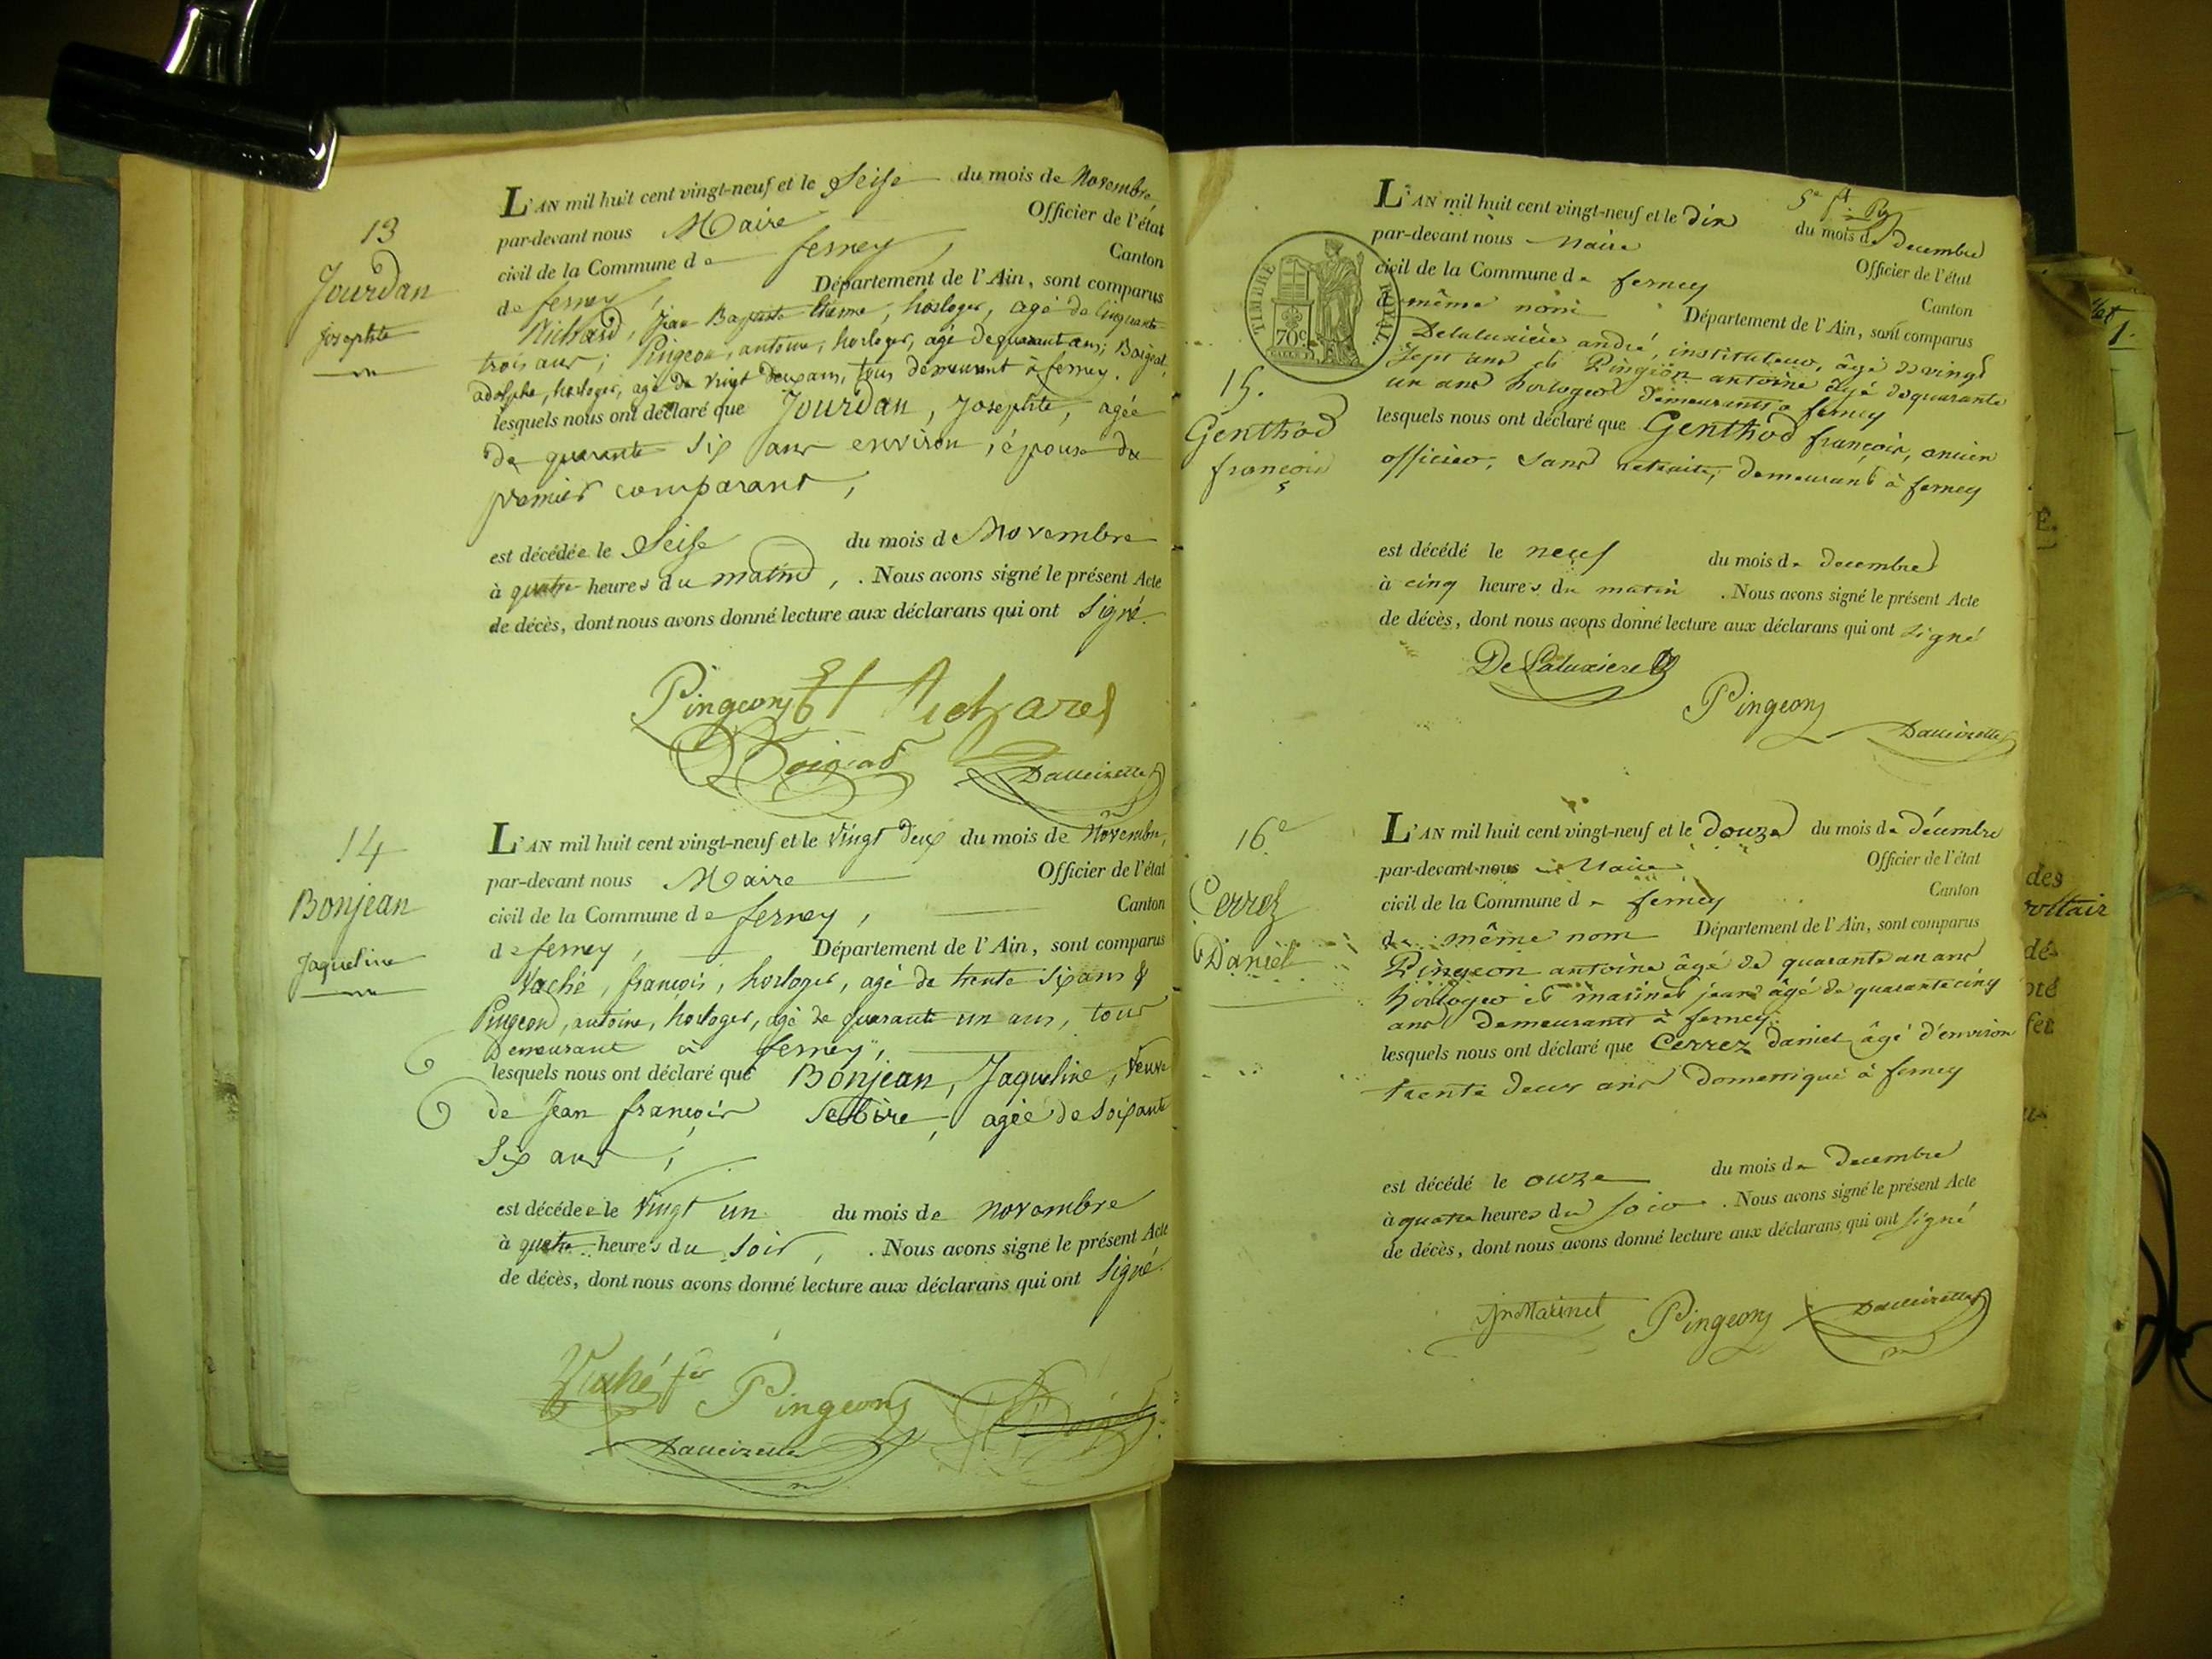 13
Jourdan
Josephte
L'AN mil huit cent vingt-neuf et le Seise du mois de Novembre
par-devant nous Maire Officier de l'état
civil de la Commune de ferney, Canton
de ferney, Département de l'Ain, sont comparus
Richard, Jean Baptiste horloger, agé de Cinquante
trois ans; Pingeon, antoine, horloger, agé de quarant ans; Boignod,
adolphe, horloger, agé de Vingt deux ans, tous demeurant à ferney.
lesquels nous ont déclaré que Jourdan, Josephte, agée
de quarante Six ans environ, épouse du
premier comparant,
est décédée le Seise du mois de Novembre
à quatre heures du matin, . Nous avons signé le présent Acte
de décès, dont nous avons donné lecture aux déclarans qui ont Signé.
Pingeon Richard
Boignod Dalleizette
14
Bonjean
Jaqueline
L'AN mil huit cent vingt-neuf et le Vingt Deux du mois de Novembre,
par-devant nous Maire Officier de l'état
civil de la Commune de ferney, Canton
de ferney, Département de l'Ain, sont comparus
Vaché, françois, horloger, agé de trente Six ans &
Pingeon, antoine, horloger, agé de quarante un ans, tous
Demeurant à ferney,
lesquels nous ont déclaré que Bonjean, Jaqueline, Veuve
de Jean françois agée de Soixante
Six ans,
est décédée le Vingt un du mois de novembre
à quatre heures du Soir, . Nous avons signé le présent Acte
de décès, dont nous avons donné lecture aux déclarans qui ont Signé.
Vaché fois Pingeon
Dalleizette
TIMBRE ROYAL.
70c
15.
Genthod
françois
L'AN mil huit cent vingt-neuf et le dix du mois de decembre
par-devant nous Maire Officier de l'état
civil de la Commune de ferney Canton
de même nom Département de l'Ain, sont comparus
Delaluxière andré, instituteur, âgé de vingt
Sept ans et Pingeon antoine âgé de quarante
un ans horloger demeurants à ferney
lesquels nous ont déclaré que Genthod françois, ancien
officier, sans retraite, demeurant à ferney
est décédé le neuf du mois de decembre
à cinq heures du matin . Nous avons signé le présent Acte
de décès, dont nous avons donné lecture aux déclarans qui ont signé
De Laluxiere
Pingeon
Dalleizette
16e
Cerrez
Daniel
L'AN mil huit cent vingt-neuf et le douze du mois de décembre
par-devant nous Maire Officier de l'état
civil de la Commune de ferney Canton
de même nom Département de l'Ain, sont comparus
Pingeon antoine âgé de quarante un ans
horloger et marinet jean âgé de quarante cinq
ans demeurants à ferney
lesquels nous ont déclaré que Cerrez daniel âgé d'environ
trente deux ans domestique à ferney
est décédé le onze du mois de Decembre
à quatre heures du soir . Nous avons signé le présent Acte
de décès, dont nous avons donné lecture aux déclarans qui ont signé
Jn Marinet Pingeon Dalleizette